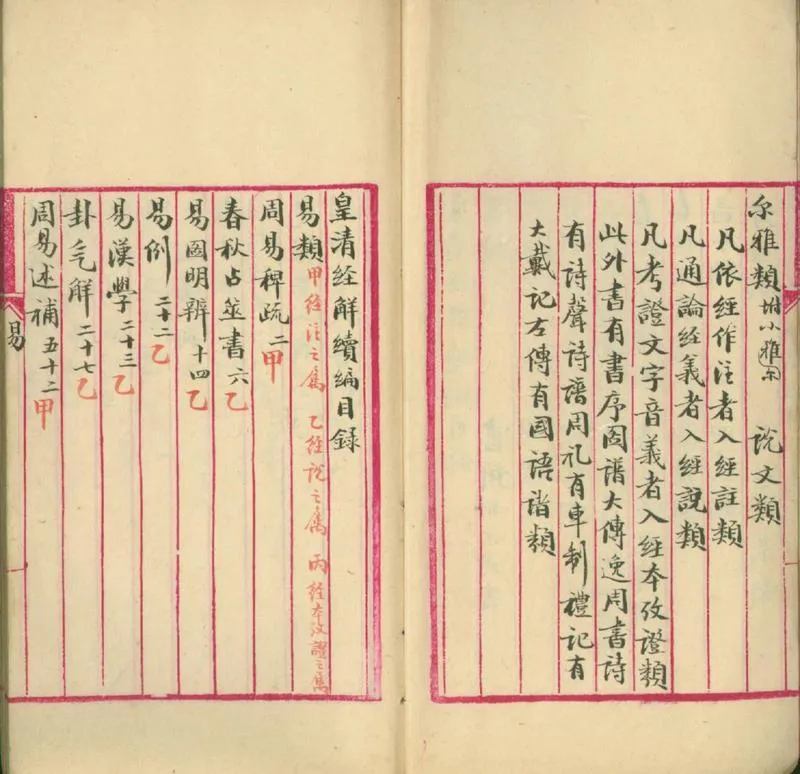 尔雅類附小雅 説文類
凡依經作注者入經註類
凡通論經義者入經説類
凡考證文字音義者入經本攷證類
此外書有書序圖譜大傳逸周書詩
有詩聲詩譜周礼有車制禮記有
大戴記左傳有國語諸類
皇清經解續編目録
易類 甲經注之屬 乙經説之屬 丙經本攷證之屬
周易稗疏二甲
春秋占筮書六乙
易圖明辨十四乙
易例二十二乙
易漢學二十三乙
卦气解二十七乙
周易述補五十二甲
易